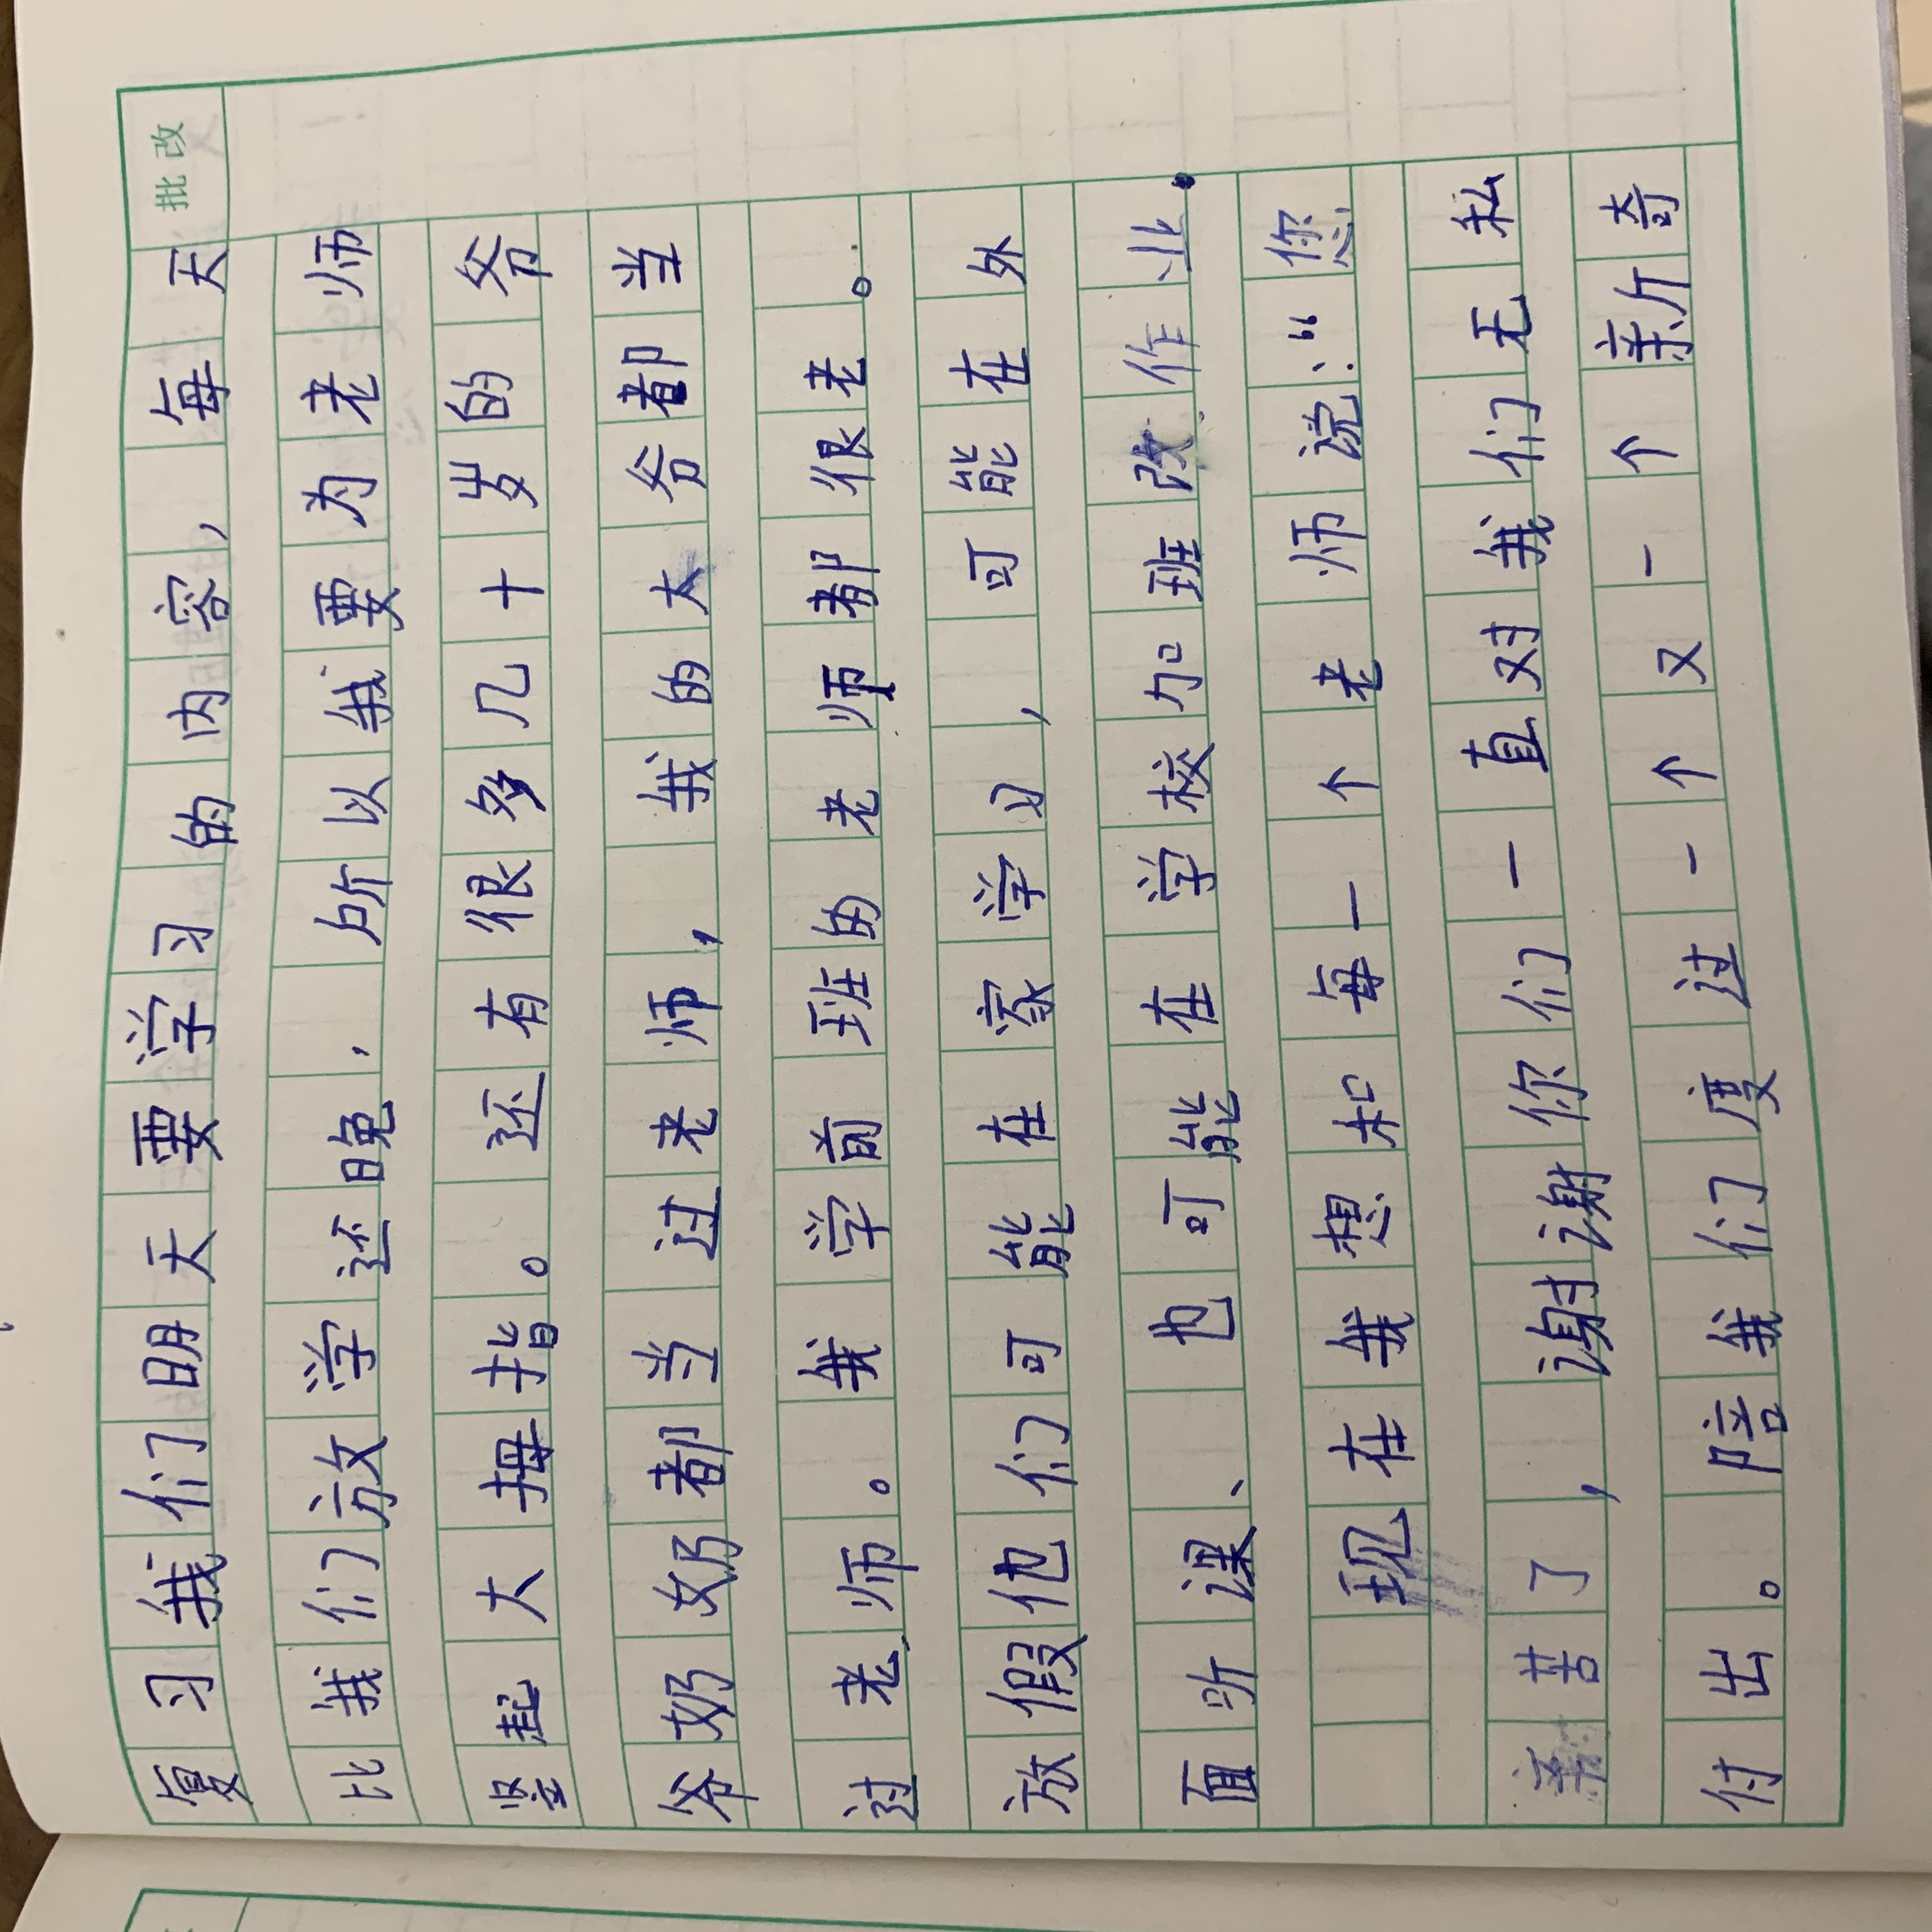 批改
复习我们明天要学习的内容，每天
比我们放学还晚，所以我要为老师
竖起大拇指。还有很多几十岁的爷
爷奶奶都当过老师，我的大爷都当
过老师。我学前班的老师都很老。
放假他们可能在家学习，可能在外
面听课、也可能在学校加班改作业。
现在我想和每一个老师说：“您
辛苦了，谢谢你们一直对我们无私
付出。陪我们度过一个又一个新奇